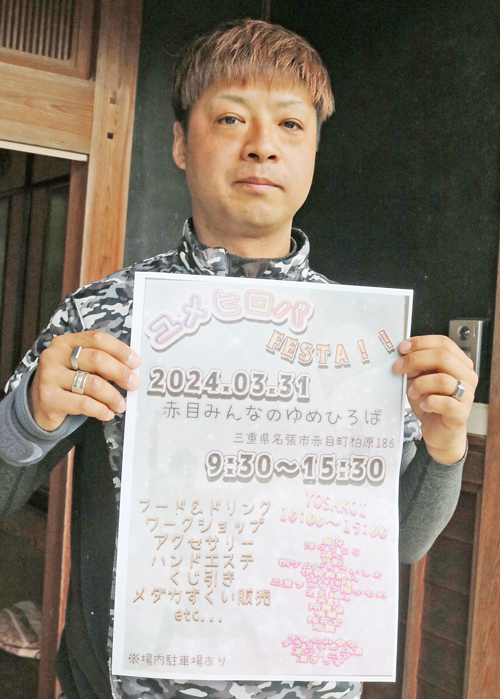 ユメヒロバ
FESTA!!
2024.03.31
赤目みんなのゆめひろば
三重県名張市赤目町柏原186
9:30～15:30
フード&ドリンク
ワークショップ
アクセサリー
ハンドエステ
くじ引き
メダカすくい販売
etc...
YOSAKOI
10:00～15:00
※場内駐車場あり